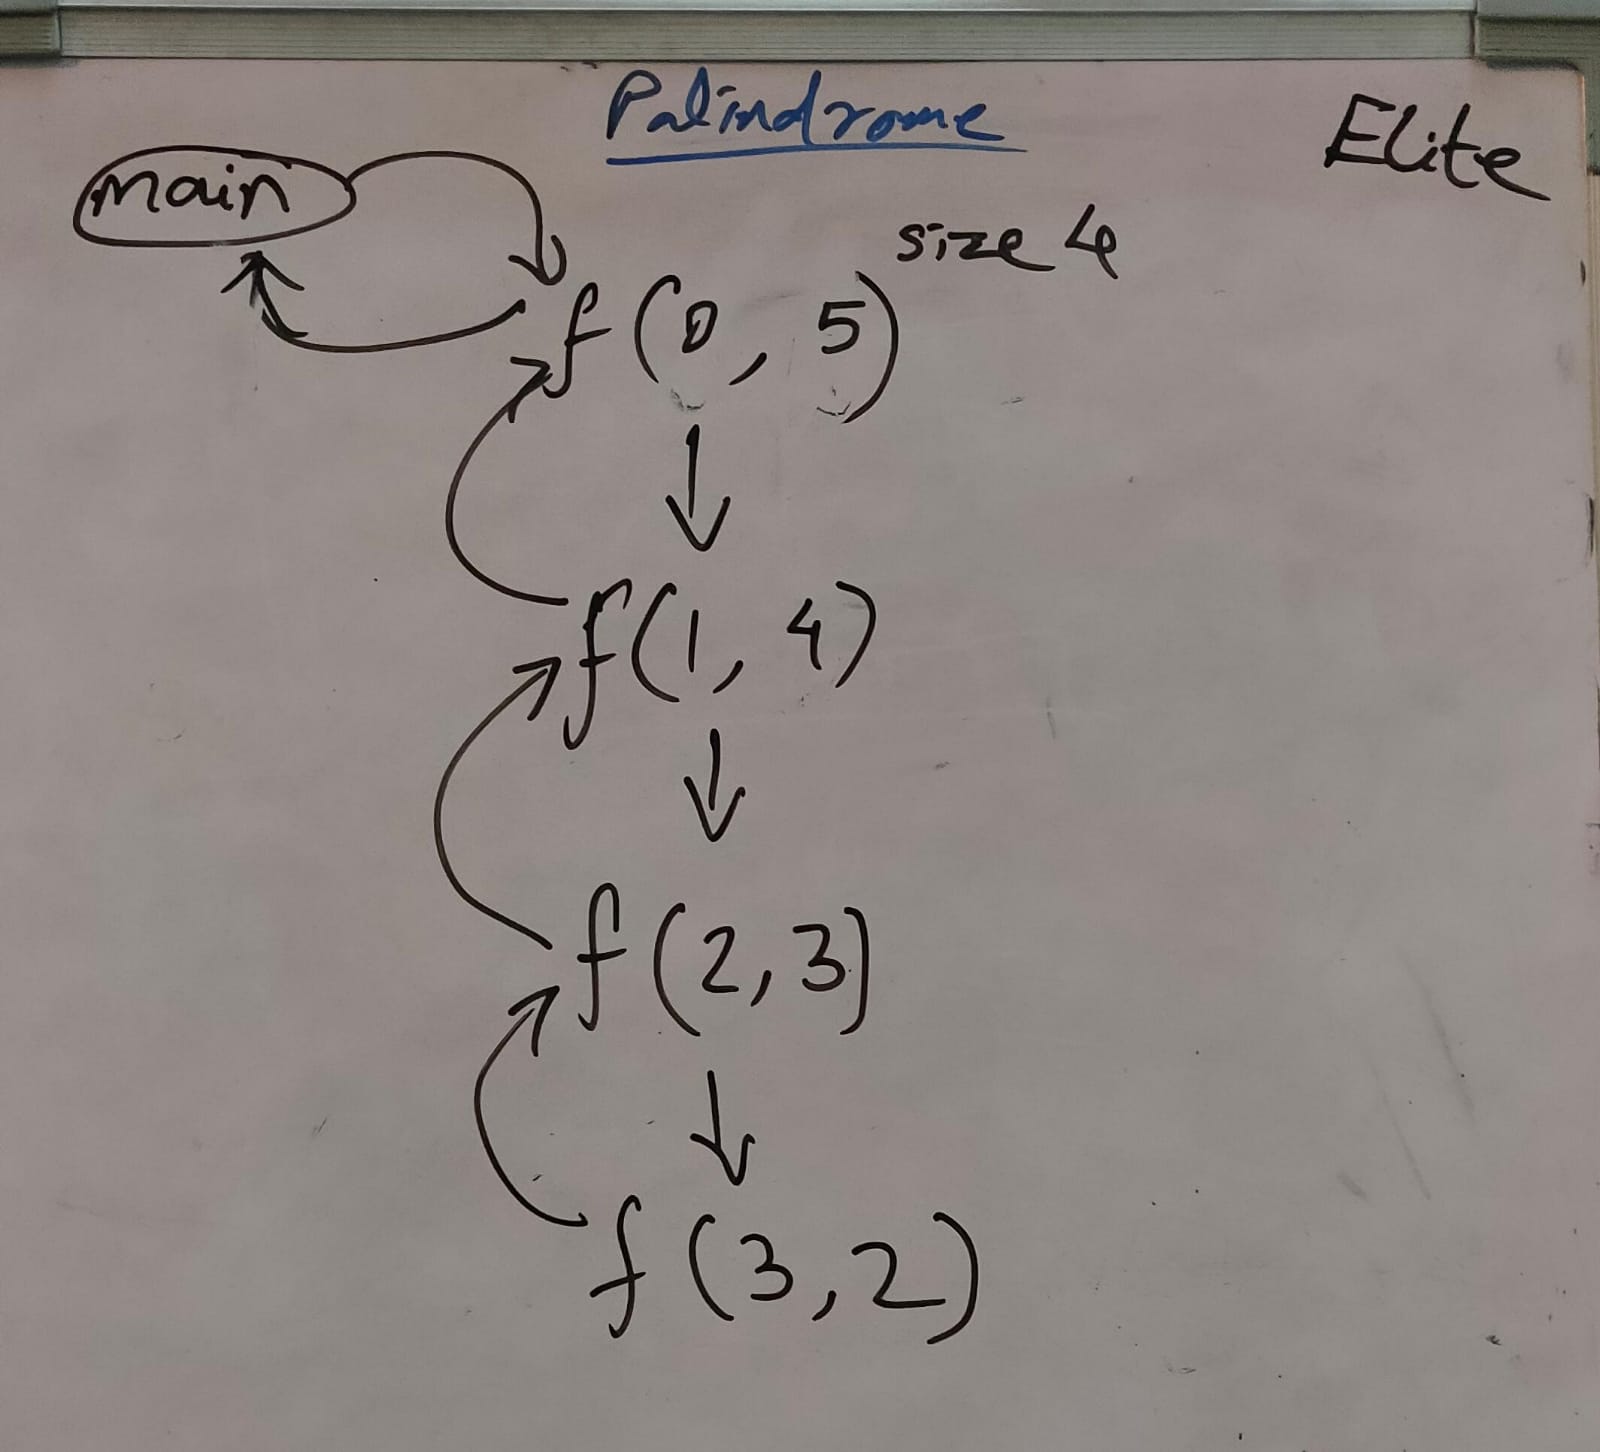 Palindrome
Elite
main
size 4
f(0, 5)
f(1, 4)
f(2,3)
f(3,2)